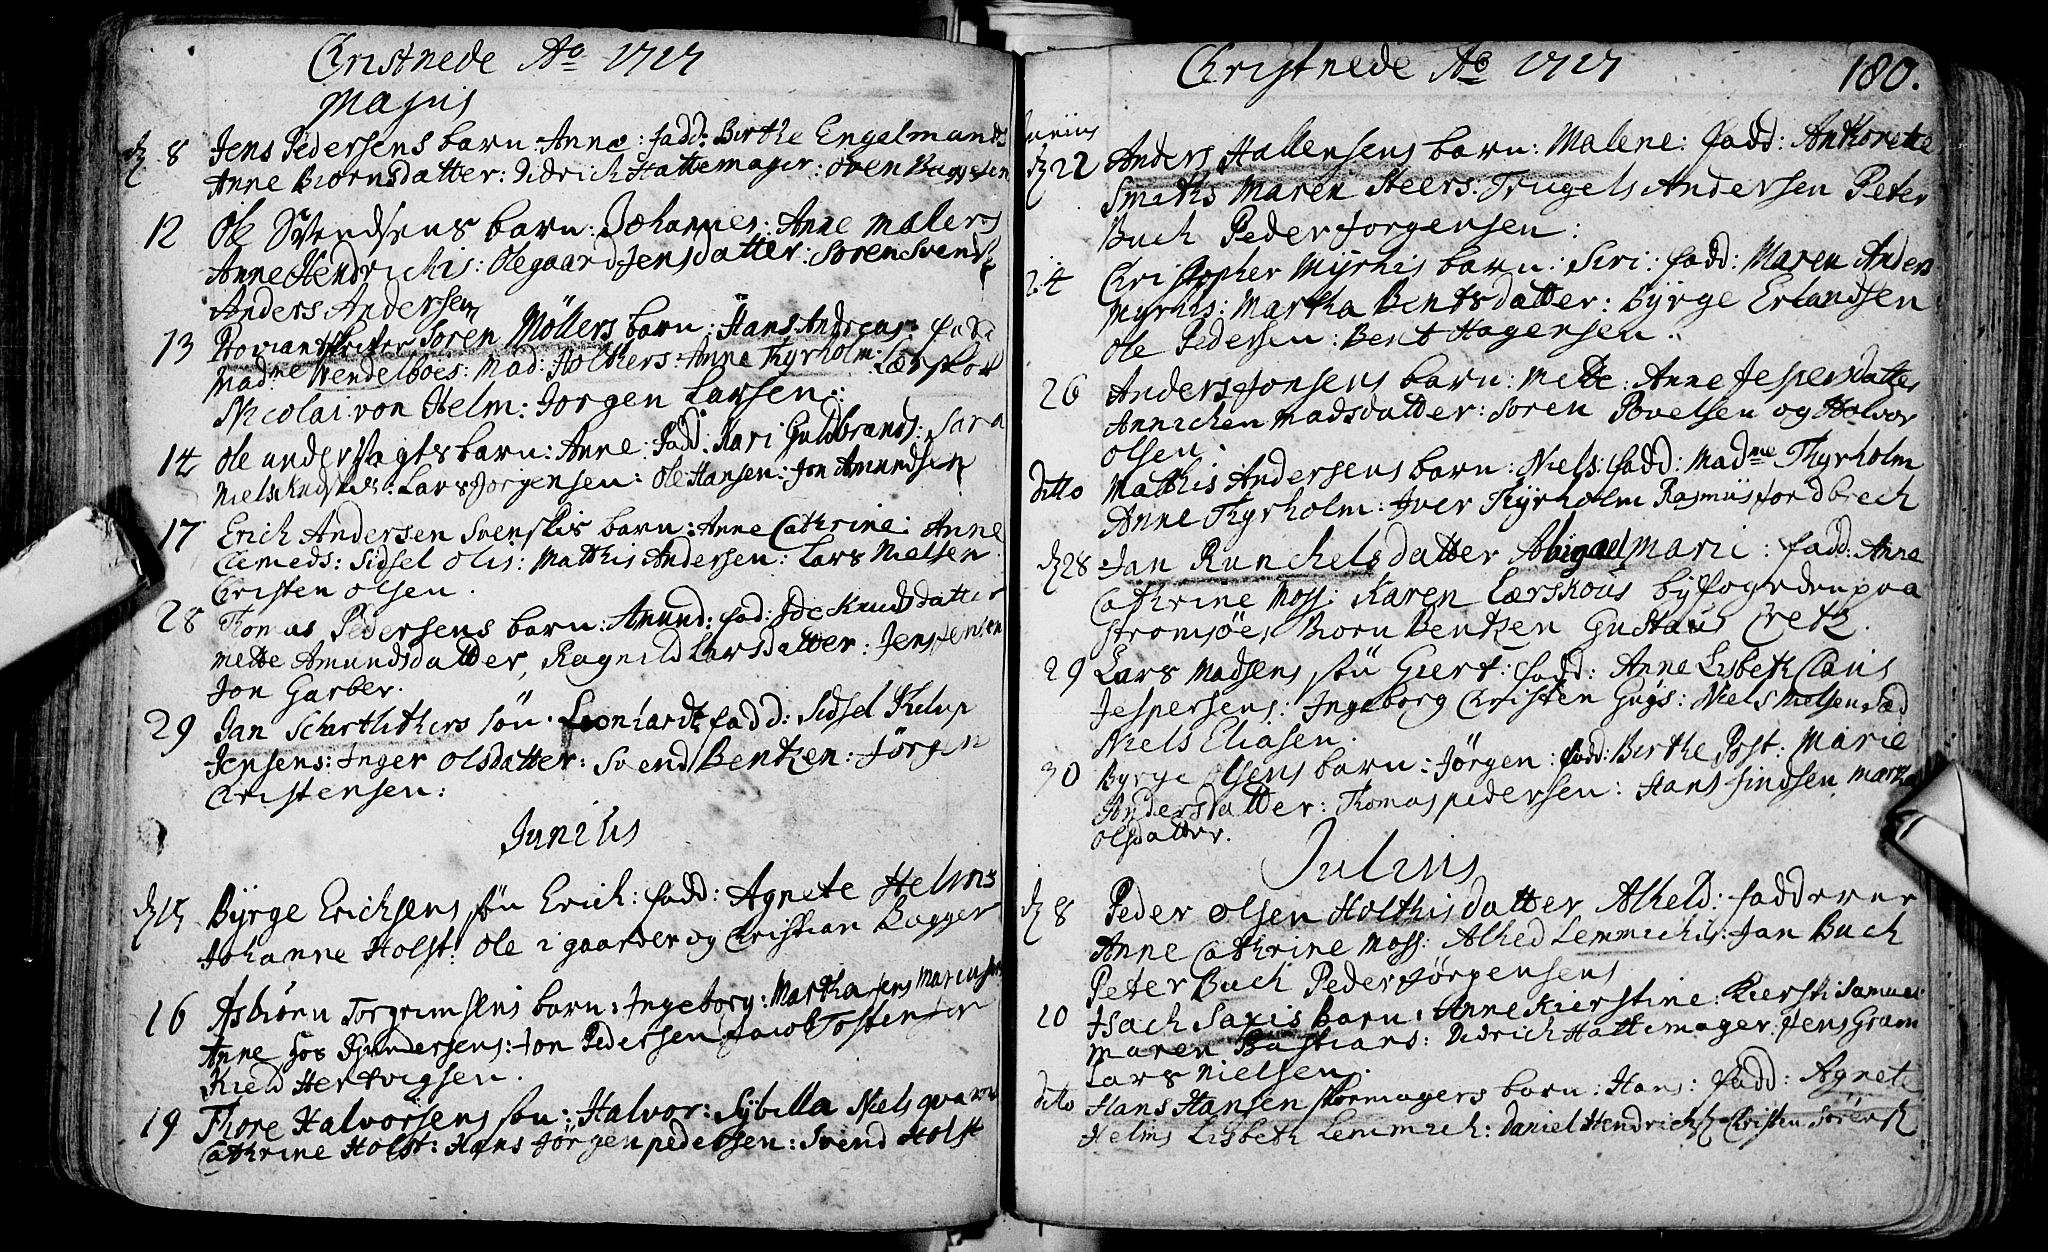 Christnede Ao 1717
Majus
d 8 Jens Pedersens barn: Anne: fadd: Birthe Engelmands
Anne Biornsdatter: Didrich Hattemager: Sven Baggesen
12 Ole Svendsens barn: Johannes: Anne Malers
Anne Hendrichis: Olegaard Jensdatter: Soren Svends
Anders Andersen
13 Proviantskrifver Soren Möllers barn: Hans Andreas: fad
Madme Wendelboes: Mad: Holthers: Anne Thyrholm: Lærskou
Nicolai von Helm: Jorgen Larsen:
14 Ole under Vagts barn: Anne: fadd: Kari Guldbrands: Sara
Niels: Lars Jorgensen: Ole Hansen: Jon Amundsen
17 Erich Andersen Svenskis barn: Anne Cathrine: Anne
Clemeds: Sidsel Olis: Matthis Andersen: Lars Nielsen
Christen Olsen.
28 Thomas Pedersens barn: Amund: fad: Ide Knudsdatter
Mette Amundsdatter, Ragnild Larsdatter: Jens Jensen
Jon Garber.
29 Jan Schertlithers søn: Leonhardt fadd: Sidsel Kelup
Jensens: Inger Olsdatter: Svend Bentzen: Jörgen
Christensen:
Junius
d 15 Byrge Erichsens søn Erich: fadd: Agnete Helms
Johanne Holst: Ole i gaarder og Christian Bagger
16 Asbiørn Torgrimsens barn: Ingeborg: Martha Jens
Anne hos Gundersens: Jon Pedersen Jacob Tostensen
Kield Hertvigsen.
19 Thore Halvorsens søn: Halvor: Sybilla Niels qvarn
Cathrine Holst: Hans Jörgen pedersen: Svend Holst
Christnede Ao 1717 180.
Junius
d 22 Anders Hallensens barn: Malene: fadd: Anthonette
Smiths Maren Steers: Trugels Andersen Peter
Buch Peder Jorgensen:
24 Christopher Myrhis barn: Siri: fadd: Maren Anders
Myrhis: Martha Bentsdatter: Byrge Erlandsen
Ole Pedersen: Bent Hagensen.
26 Anders Jonsens barn: Mette: Anne Jespersdatter
Annichen Madsdatter: Soren Povelsen og Halvor
Olsen.
ditto Matthis Andersens barn: Niels: fadd: Madme Thyrholm
Anne Thyrholm: Iver Thyrholm Rasmus fordbrech
d 28 Jan Runchels datter Abigael Mari: fadd: Anne
Cathrine Moss: Karen Lærskous byfogeden paa
Stromsöe, Biorn Bentzen Gustaus Cretz.
29 Lars Madsens søn Giert: fadd: Anne Lisbeth Claus
Jespersens: Ingeborg Christen Gugs: Niels Nielsen
Niels Eliasen.
30 Byrge Olsens barn: Jörgen: fadd: Birthe Post: Marie
Andersdatter: Thomas pedersen: Hans findsen Martha
Olsdatter.
Julius
d 8 Peder Olsen Holthis datter Alheld: faddere
Anne Cathrine Moss: Alhed Lemmichis: Jan Buch
Peter Buch Peder Jörgensens
10 Isach Saxis Barn: Anne Kierstine: Kiersti Samuel
Maren Bastians: Didrich Hattemager: Jens Gram
Lars Nielsen.
ditto Hans Hansen skomagers barn: Hans: fadd: Agnete
Helms Lisbeth Lemmich: Daniel Hendrichs: Christen Sörens